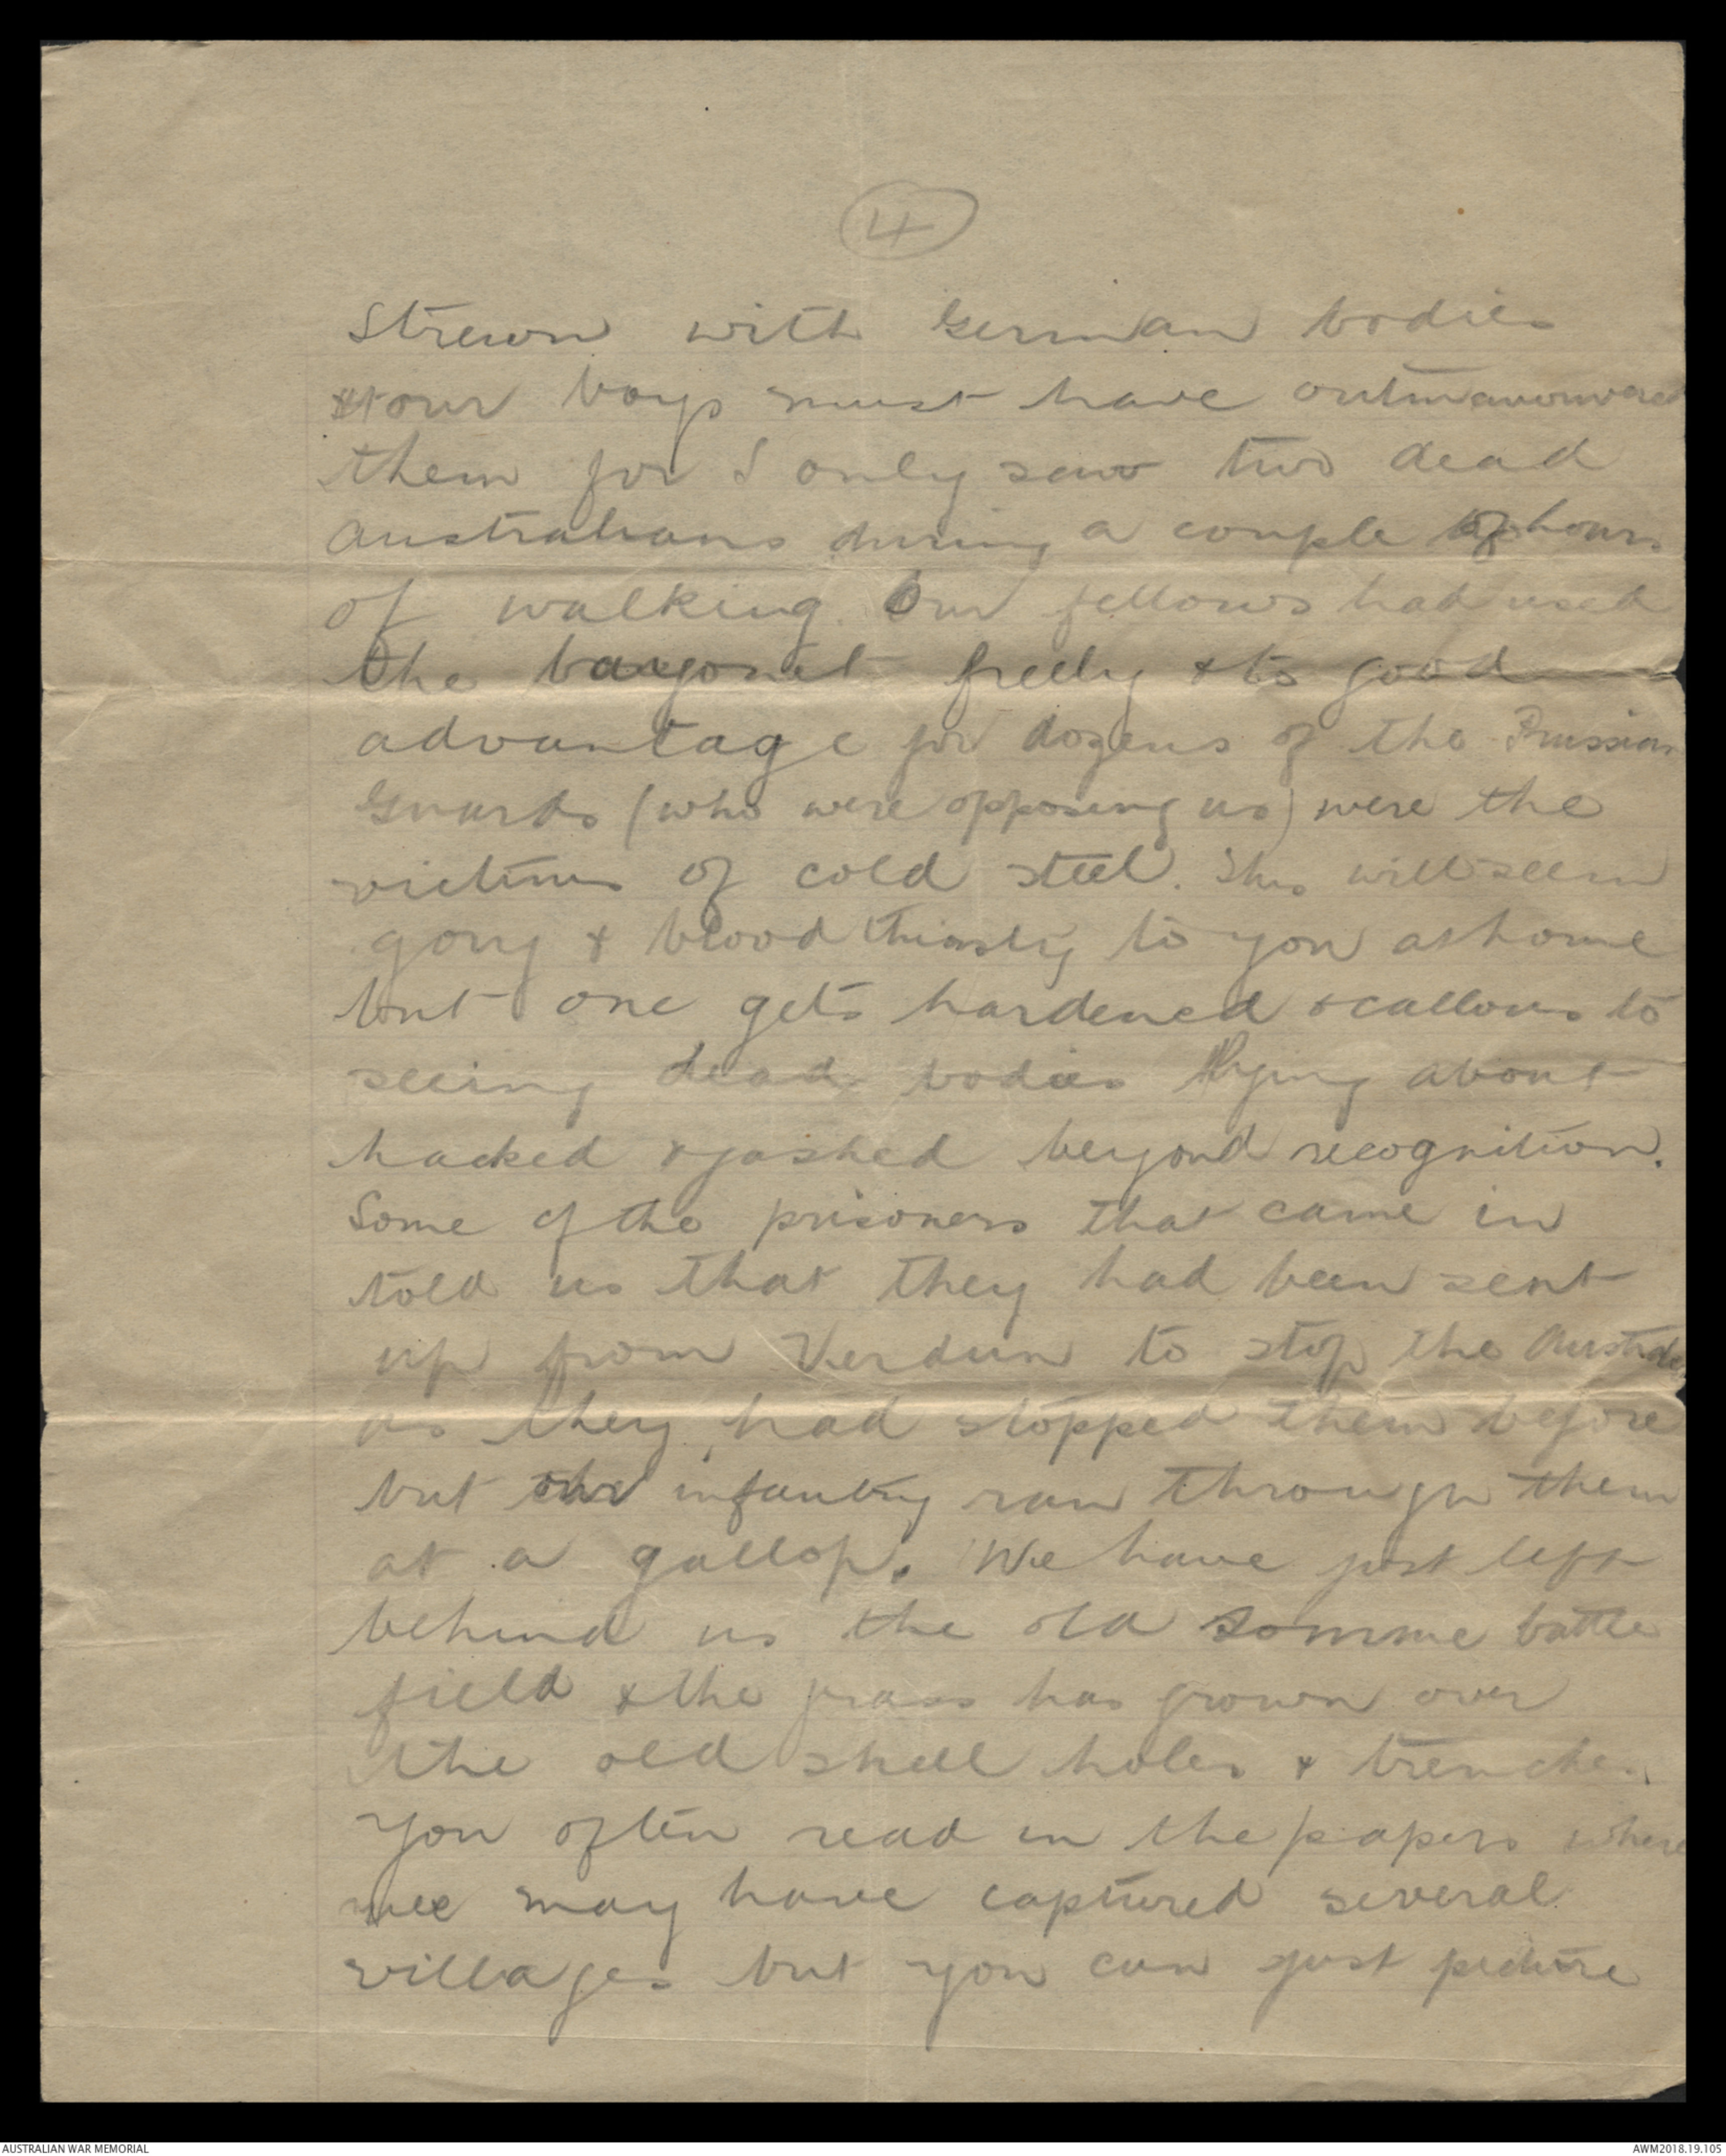 4
strewn with German bodies
& our boys must have outmanouvered
them for I only saw two dead
Australians during a couple of hours
of walking. Our fellows had used
the bayonet freely & to good
advantage for dozens of the Prussian
Guards (who were opposing us) were the
victims of cold steel. This will seem
gory & blood thirsty to you at home
but one gets hardened & callous to
seeing dead bodies lying about
hacked & gashed beyond recognition.
Some of the prisoners that came in
told us that they had been sent
up from Verdun to stop the
as they had stopped them before
but our infantry ran through them
at a gallop. We have just left
behind us the old Somme battle
field & the grass has grown over
the old shell holes & trenches.
You often read in the papers where
we may have captured several
villages but you can just picture
AUSTRALIAN WAR MEMORIAL
AWM2018.19.105